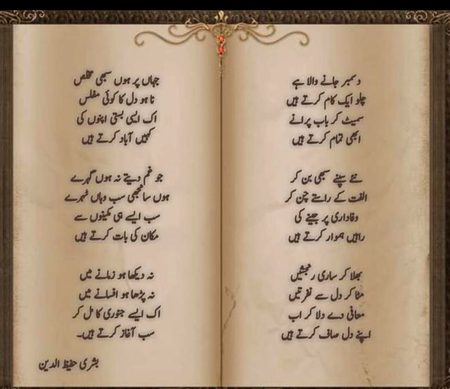 دسمبر جانے والا ہے
چلو ایک کام کرتے ہیں
سمیٹ کر باب پرانے
ابھی تمام کرتے ہیں
نئے سپنے سبھی بن کر
الفت کے راستے چن کر
وفاداری پر جینے کی
راہیں ہموار کرتے ہیں
بھلا کر ساری رنجشیں
مٹا کر دل سے نفرتیں
معافی دے دلا کر اب
اپنے دل صاف کرتے ہیں
جہاں پر ہوں سبھی مخلص
نا ہو دل کا کوئی مفلس
اک ایسی بستی اپنوں کی
کہیں آباد کرتے ہیں
جو غم دیتے نہ ہوں گہرے
ہوں سانجھی سب وہاں ٹھہرے
سب ایسے ہی مکینوں سے
مکان کی بات کرتے ہیں
نہ دیکھا ہو زمانے میں
نہ پڑھا ہو افسانے میں
اک ایسے جنوری کا مل کر
سب آغاز کرتے ہیں۔
بشریٰ حفیظ الدین